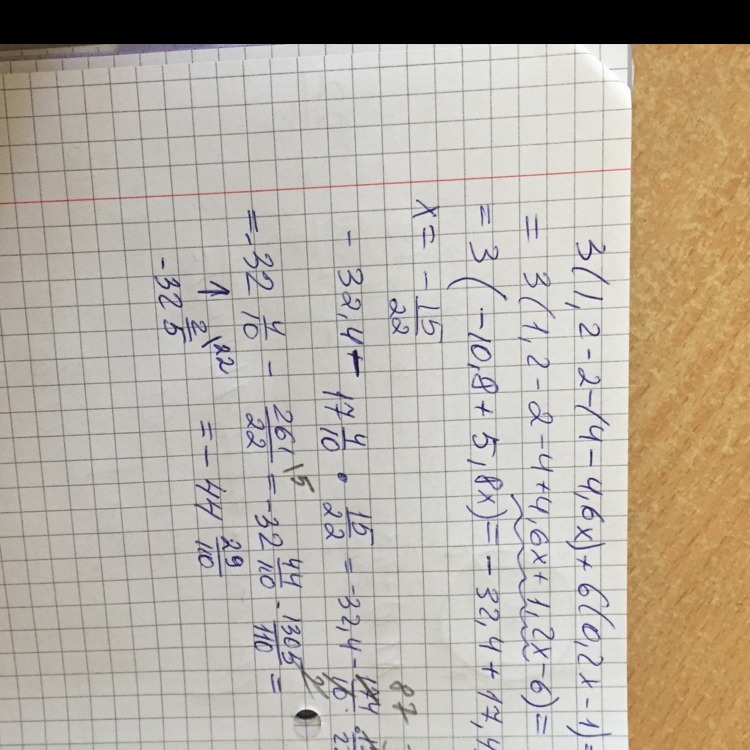 3(1,2-2-(4-4,6x)+6(0,2x-1)=
=3(1,2-2-4+4,6x+1,2x-6)=
=3(-10,8+5,8x)=-32,4+17,4
x=-15/22
-32,4-17 4/10·15/22=-32,4-174/10·
=-32 4/10-261/22\5=-32 44/110-1305/110=
-32 2/5\22 =-44 29/110
87